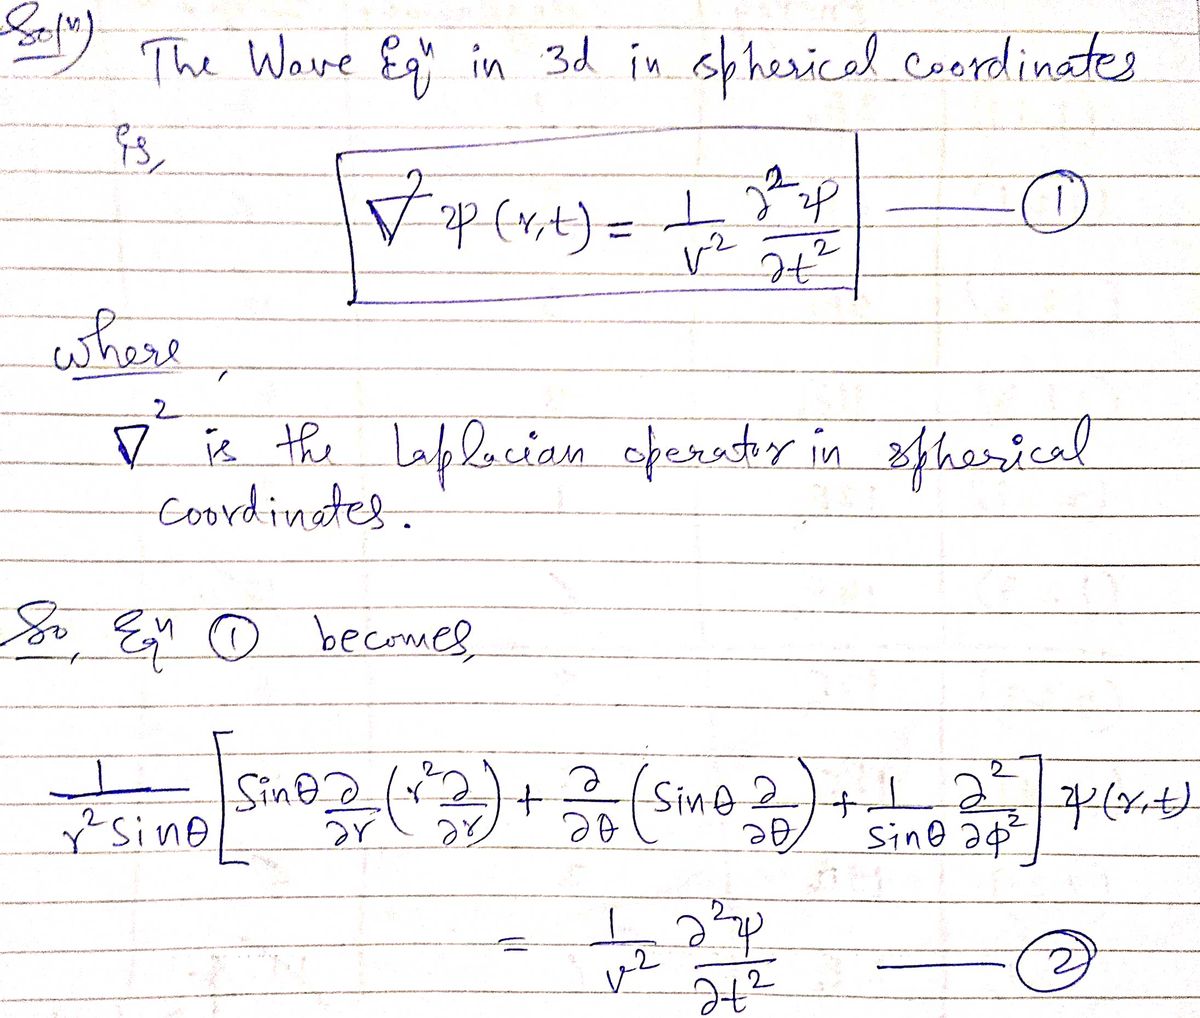 Sol(n)
The Wave Eqn in 3d in spherical coordinates
is,
∇² ψ (r,t) = 1/v² ∂²ψ/∂t² —— ①
where,
∇² is the Laplacian operator in spherical
coordinates.
So, Eqn ① becomes,
1/(r² Sinθ) [Sinθ ∂/∂r (r² ∂/∂r) + ∂/∂θ (Sinθ ∂/∂θ) + 1/Sinθ ∂²/∂φ²] ψ(r,t)
= 1/v² ∂²ψ/∂t² —— ②